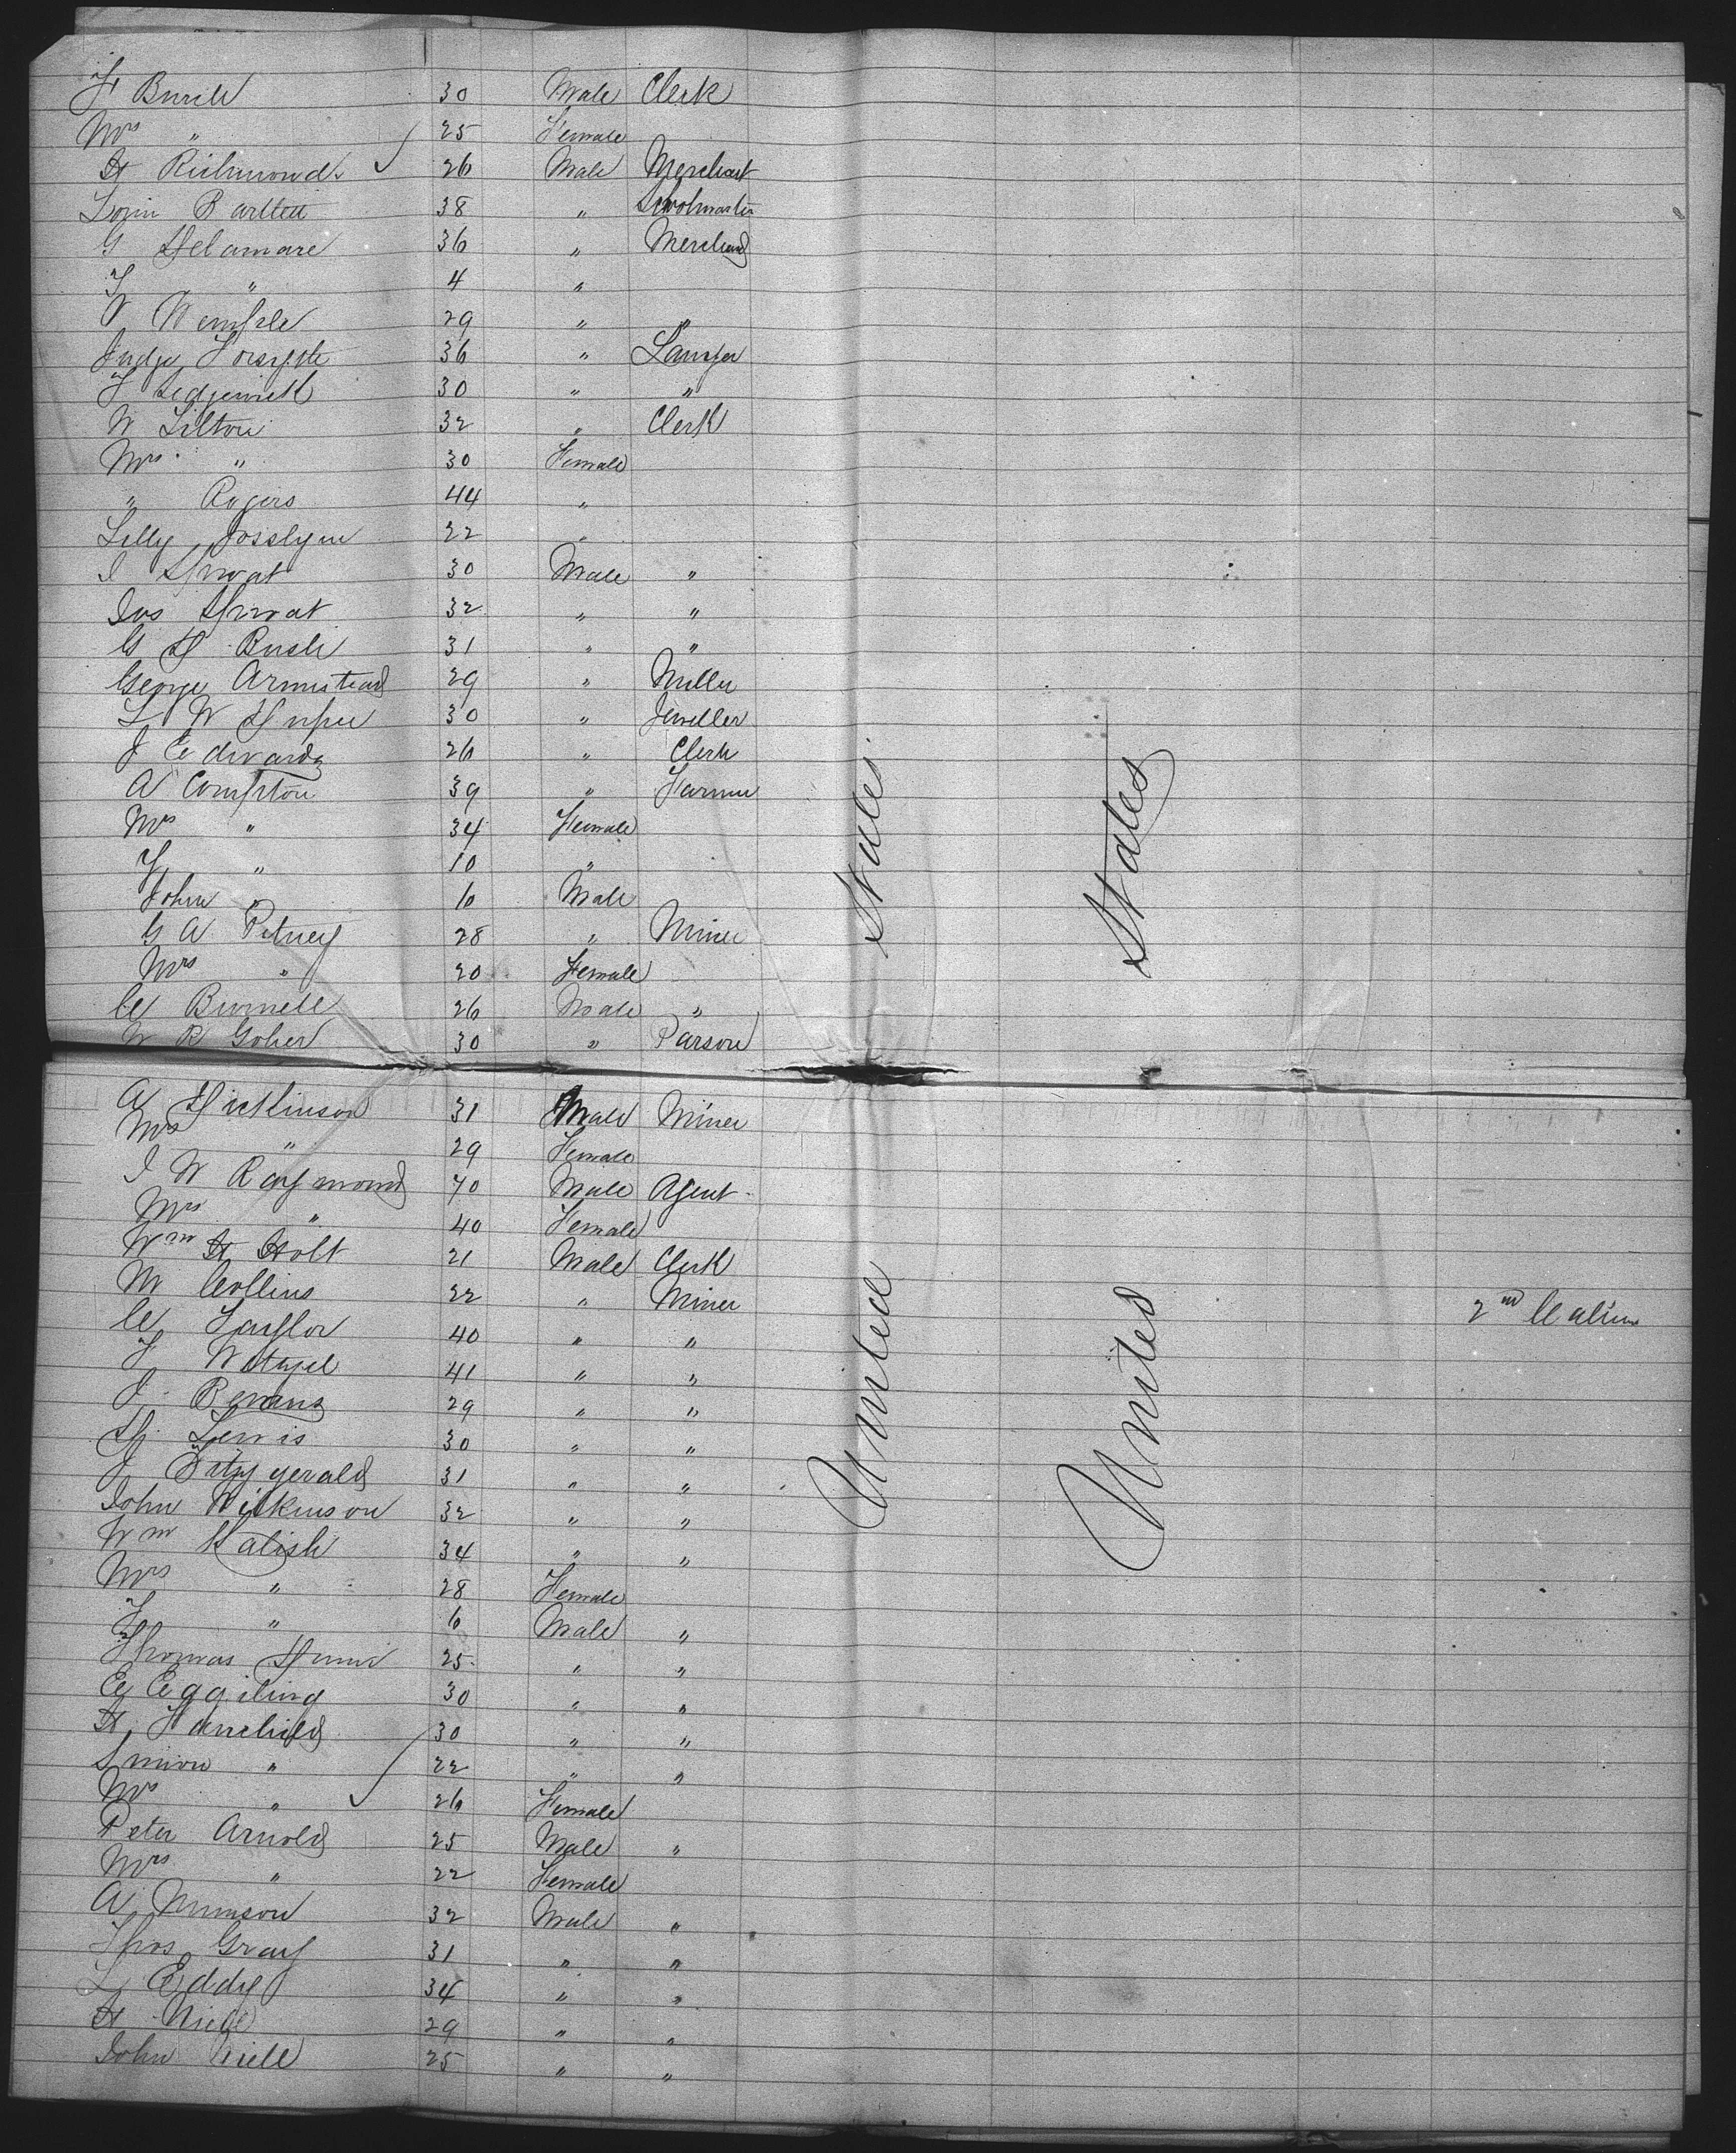 30 Male Clerk
Mrs " 25 Female
H Richmond 26 Male Merchant
38 " Schoolmaster
G Delamare 36 " Merchand
" 4 "
29 " "
Judge Forsyth 36 " Lawyer
30 " "
W Tilton 32 " Clerk
Mrs " 30 Female
" Rogers 44 "
Lilly Josslyn 22 "
30 Male "
32 " "
G H Bush 31 " "
George Armistead 29 " Miller
L W 30 " Jeweller
J Edwards 26 " Clerk
A Compton 39 " Farmer
Mrs " 34 Female
" 10 "
John " 6 Male
G A Petney 28 " Miner
Mrs " 20 Female
C Burnell 26 Male "
W R Goher 30 " Parson
A Dickinson 31 Male Miner
Mrs " 29 Female
I W Raymond 40 Male Agent
Mrs " 40 Female
Wm H Holt 21 Male Clerk
M Collins 22 " Miner
C Taylor 40 " "
41 " "
J Bevans 29 " "
D Lewis 30 " "
J Fitzgerald 31 " "
John Wilkinson 32 " "
Wm Kalish 34 " "
Mrs " 28 Female
" 6 Male "
Thomas 25 " "
E Eggiling 30 " "
H Fairchild 30 " "
Simon " 22 " "
Mrs " 26 Female
Peter Arnold 25 Male "
Mrs " 22 Female
A Munson 32 Male "
Thos Gray 31 " "
L Eddy 34 " "
29 " "
John 25 " "
United States
United States
2nd Cabin